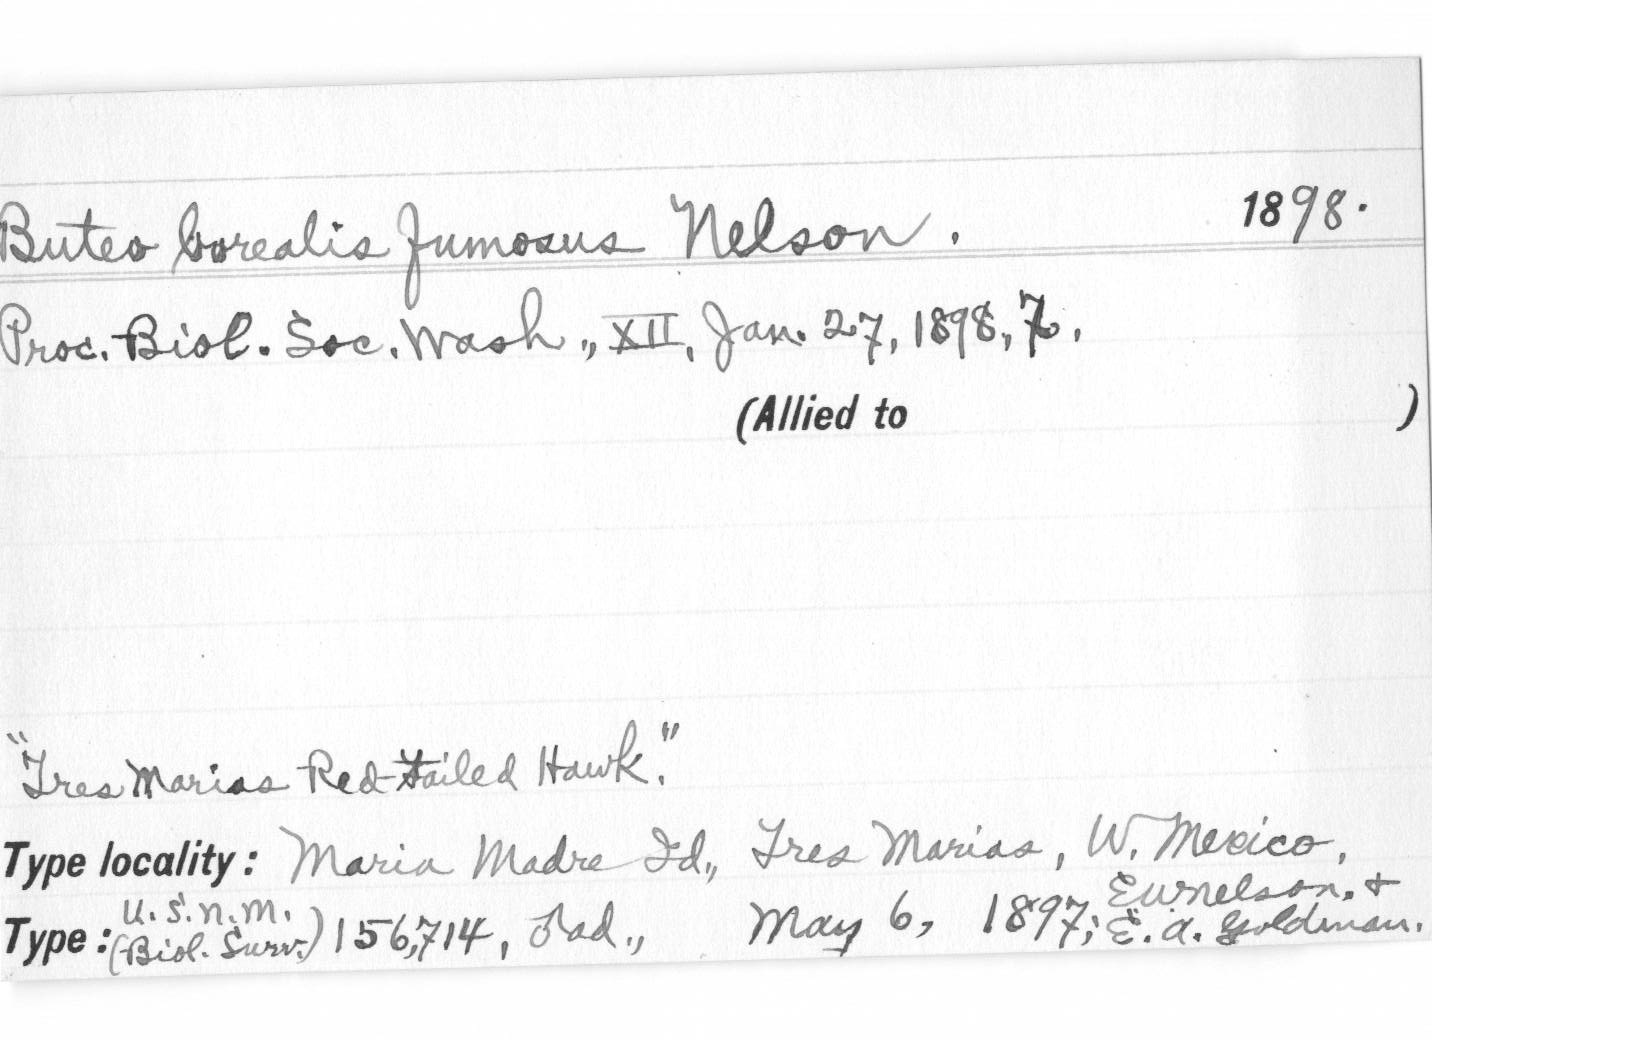 Buteo borealis fumosus Nelson. 1898.
Proc. Biol. Soc. Wash., XII, Jan. 27, 1898, 7.
(Allied to )
"Tres Marias Red-tailed Hawk."
Type locality: Maria Madre Id., Tres Marias, W. Mexico,
Type: U.S.N.M. (Biol. Surv.) 156,714, ad., May 6, 1897; E W Nelson. & E. A. Goldman.